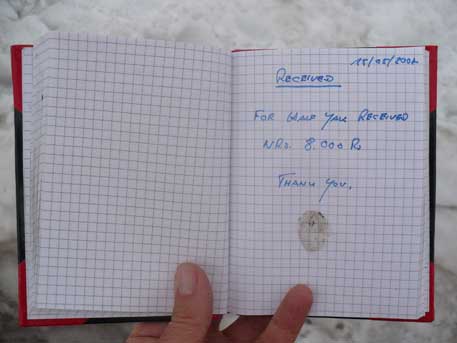 15/05/200
RECEIVED
FOR YAK RECEIVED
NRS. 8.000 R
THANK YOU.